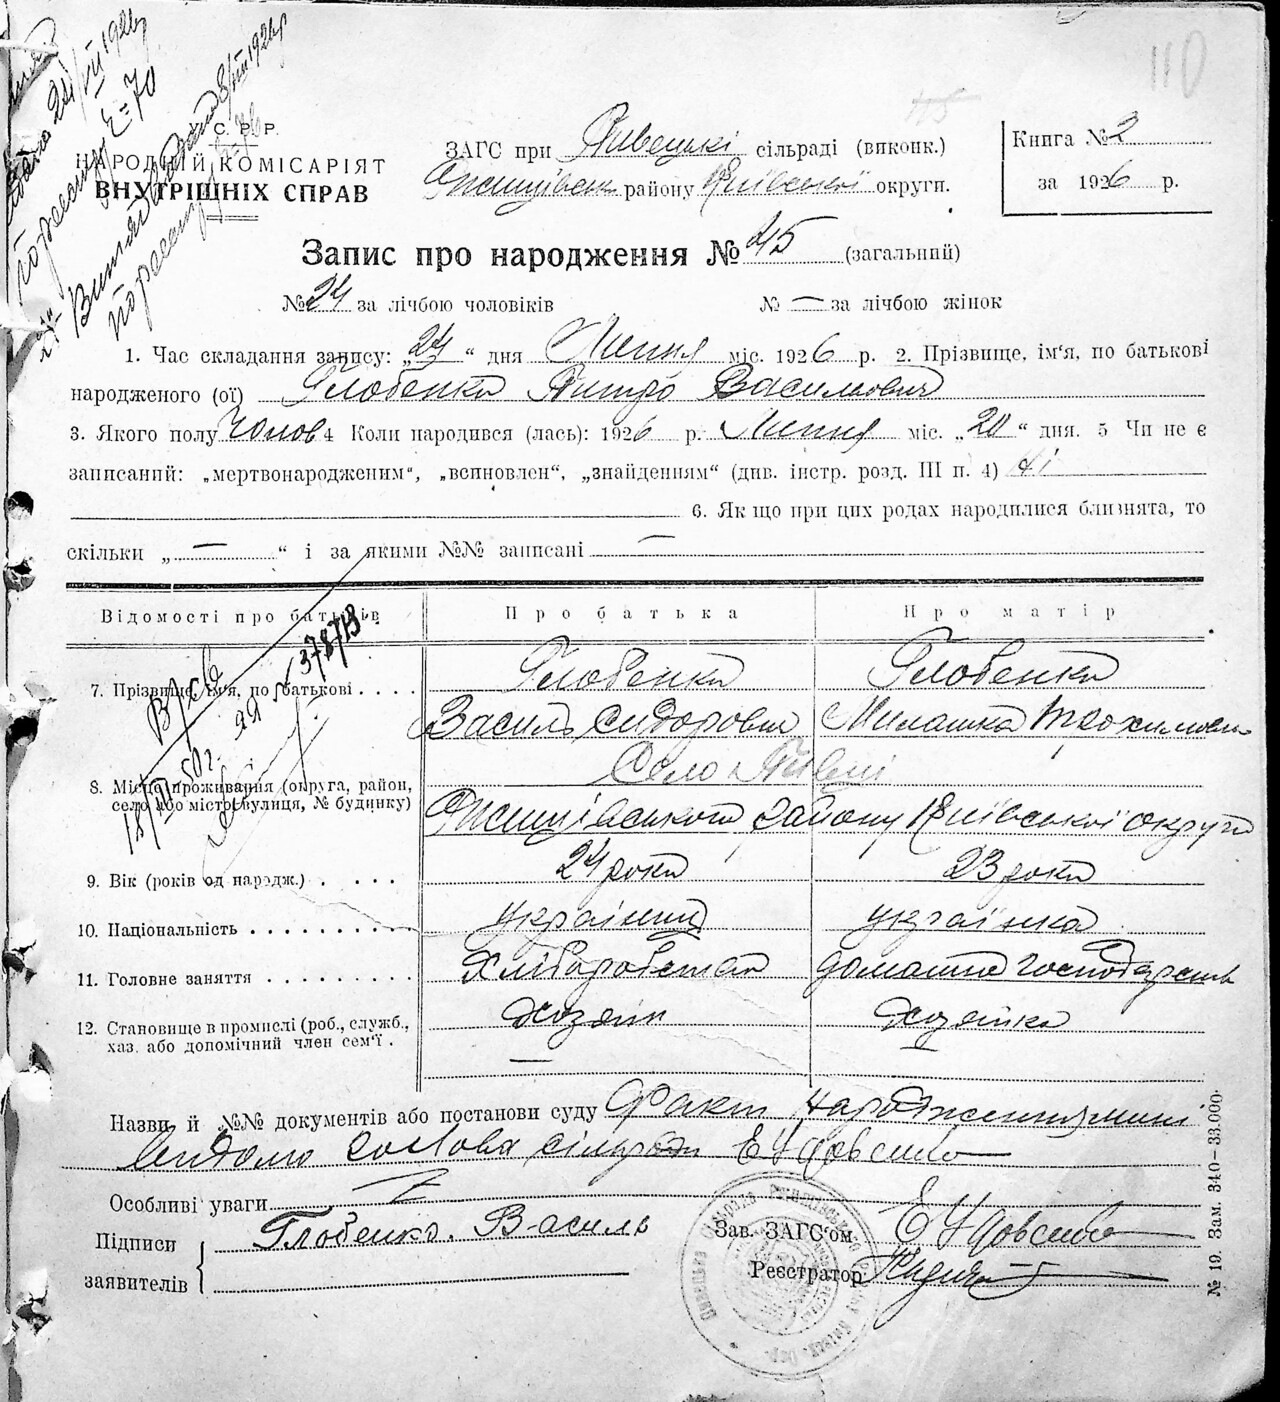 110
45
С. Р. Р.
НАРОДНИЙ КОМІСАРІЯТ
ВНУТРІШНІХ СПРАВ
ЗАГС при Пивецькі сільраді (виконк.)
району Київської округи.
Книга № 2
за 1926 р.
Запис про народження № 45 (загальний)
№ 24 за лічбою чоловіків № — за лічбою жінок
1. Час складання запису: „24“ дня Липня міс. 1926 р. 2. Прізвище, ім'я, по батькові
народженого (ої) Глобенко Питро Василиович
3. Якого полу Чолов 4 Коли народився (лась): 1926 р. Липня міс. „20“ дня. 5 Чи не є
записаний: „мертвонародженим“, „всиновлен“, „знайденням“ (див. інстр. розд. III п. 4) Ні
6. Якщо при цих родах народилися близнята, то
скільки „—“ і за якими №№ записані —
Відомості про батьків Про батька Про матір
7. Прізвище, ім'я, по батькові . . . . Глобенко Глобенко
Василь Сидорович Милашка Трохимовна
8. Місце проживання (округа, район, село або місто, вулиця, № будинку) Село Пивці
району Київської округи
9. Вік (років од народж.) . . . . 24 роки 23 роки
10. Національність . . . . . . . . . українець українка
11. Головне заняття . . . . . . . . Хліборобство домашнє господарств
12. Становище в промислі (роб., служб., хаз. або допомічний член сем'ї . хозяїн хозяйка
—
Назви й №№ документів або постанови суду Факт народження мині
відомо голова сільради Е Удовенко
Особливі уваги
Підписи
заявителів
Глобенко. Василь
Зав. ЗАГС'ом Е Удовенко
Реєстратор
№ 19. Зам. 340—33.000.